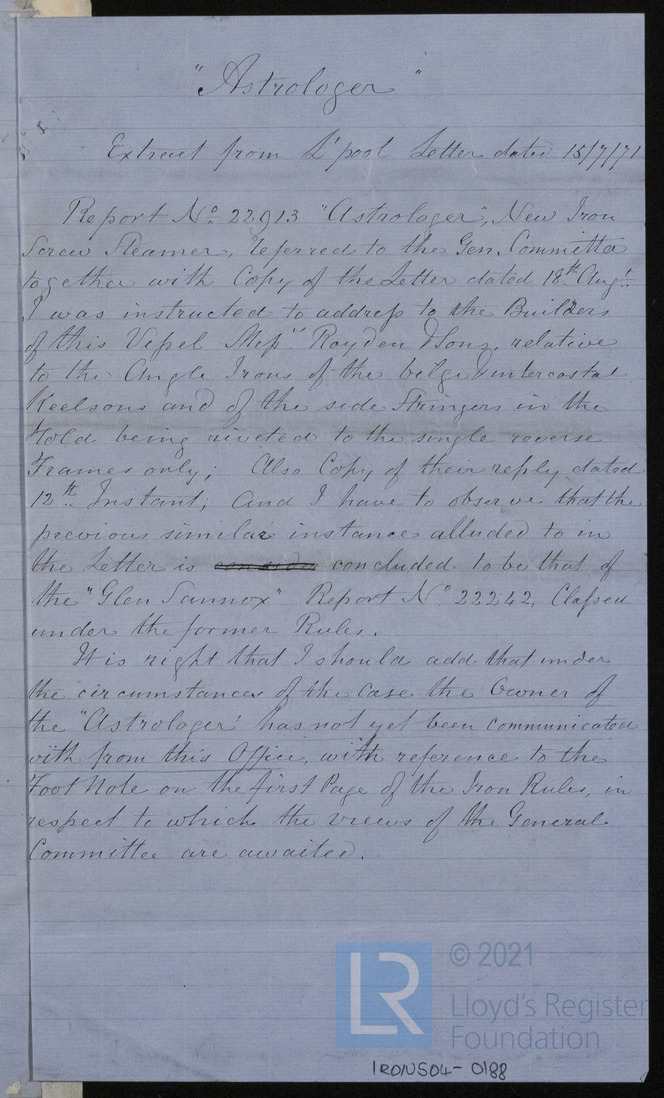 "Astrologer"
Extract from L'pool Letter dated 15/7/71
Report No. 22913 "Astrologer", New Iron
Screw Steamer, referred to the Gen. Committee
together with Copy of the Letter dated 18th Augt.
I was instructed to address to the Builders
of this Vessel Messrs Royden & Sons, relative
to the Angle Irons of the bilge & intercostal
Keelsons and of the side Stringers in the
Hold being riveted to the single reverse
Frames only; Also Copy of their reply dated
12th Instant; and I have to observe that the
previous similar instance alluded to in
the Letter is concluded to be that of
the "Glen Sannox" Report No. 22242, Classed
under the former Rules.
It is right that I should add that under
the circumstances of the case the Owner of
the "Astrologer" has not yet been communicated
with from this Office, with reference to the
Foot Note on the first Page of the Iron Rules, in
respect to which the views of the General
Committee are awaited.
LR
© 2021
Lloyd's Register
Foundation
IRON504-0188